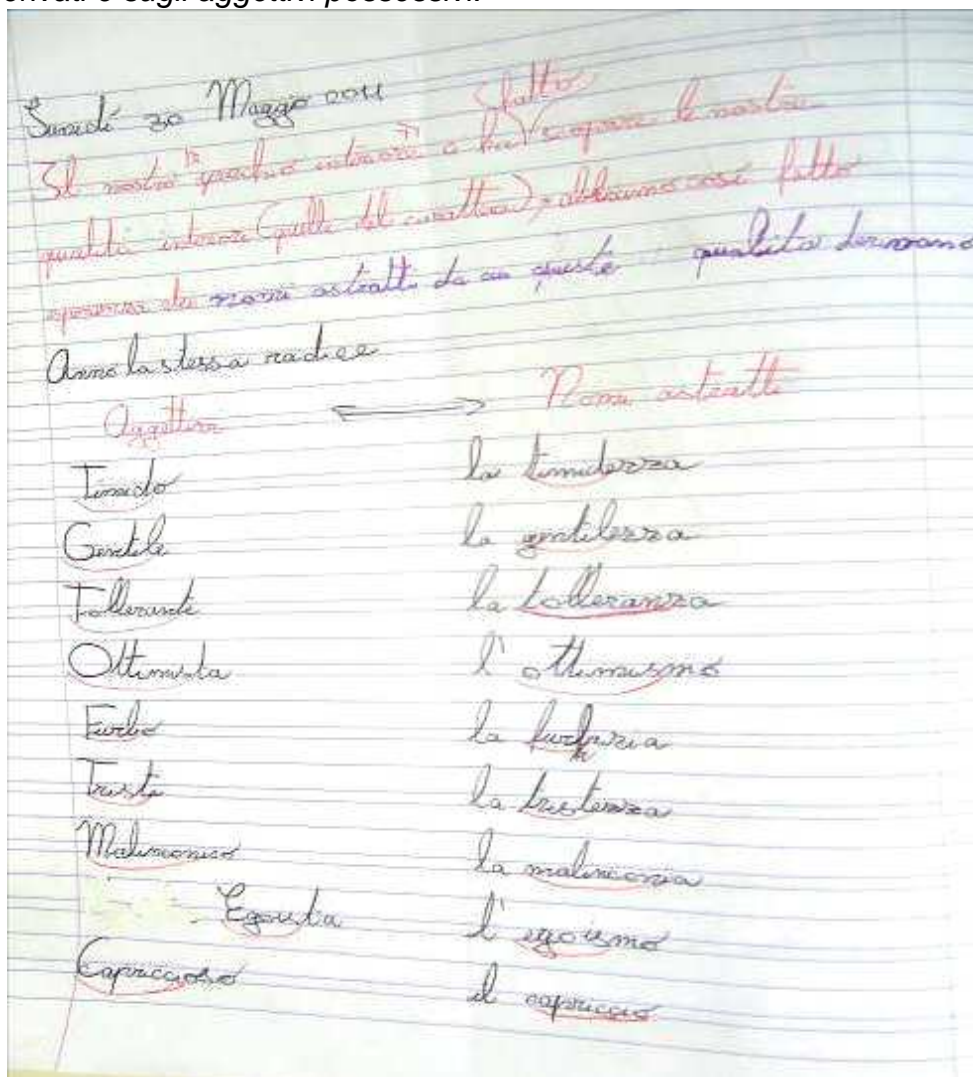 sugli aggettivi possessivi.
Lunedì 30 Maggio 2011
fatto
Il nostro specchio interiore ci ha scoprire le nostre
qualità interiori (quelle del carattere), abbiamo così fatto
nomi astratti da cui queste qualità derivano
Anno la stessa radice
Aggettivi Nomi astratti
Timido la timidezza
Gentile la gentilezza
Tollerante la tolleranza
Ottimista l'ottimismo
Furbo la furberia
Triste la tristezza
Malinconico la malinconia
Egoista l'egoismo
Capriccioso il capriccio